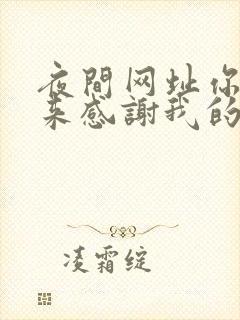 夜間网址你
来感謝我的
凌霜绽